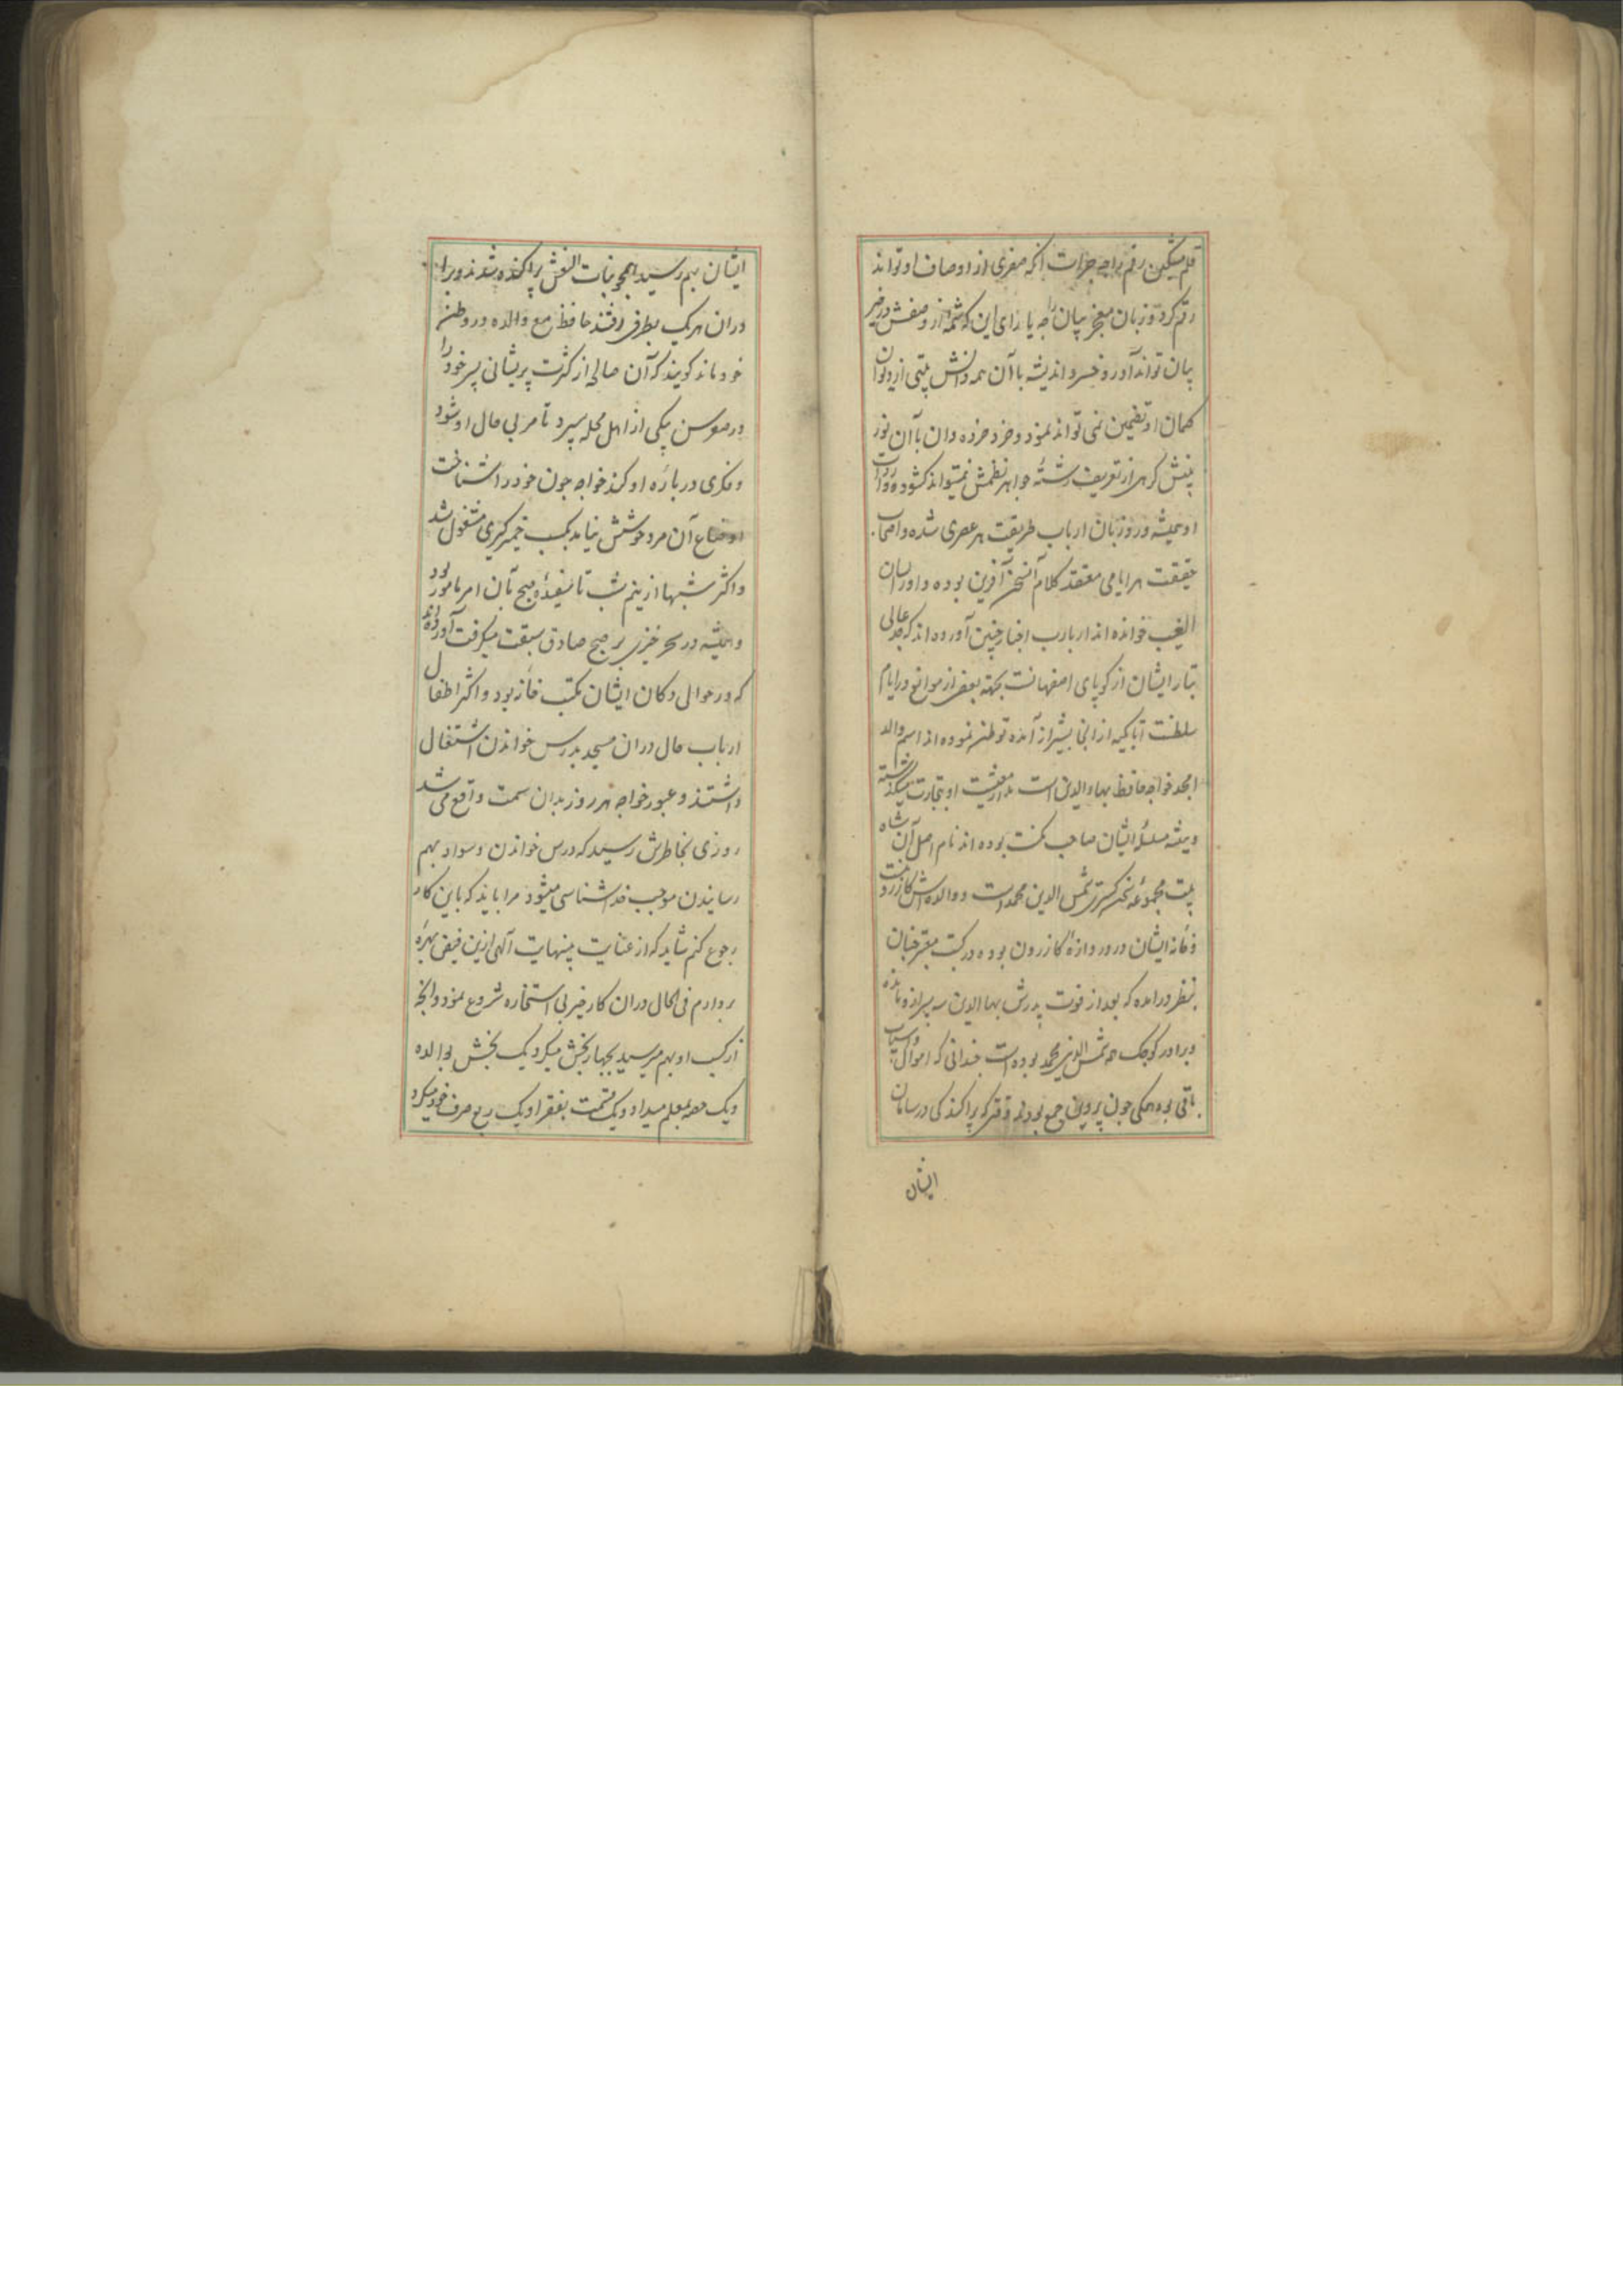 قلم مشکین رقم را چه جرات آنکه صغری از اوصاف او تواند
رقم کرد و زبان معجز بیان را چه یارای این که شمهٔ از وصفش در حیز
بیان تواند آورد و خسرو اندیشه با آن همه دانش بیتی از دیوان
کمال او تضمین نمی تواند نمود و خرد خرده دان با آن نور
بینش گرهی از تعریف رشتهٔ جواهر نظمش نمیتواند کشود
او همیشه ورد زبان ارباب طریقت هر عصری شده و اصحاب
حقیقت هر ایامی معتقد کلام آن سخن آفرین بوده و او را لسان
الغیب خوانده اند ارباب اخبار چنین آورده اند که جد عالی
تبار ایشان از کوپای اصفهانست بجهته بعضی از موانع در ایام
سلطنت اتابکیه از انجا بشیراز آمده توطن نموده اند اسم والد
امجد خواجه حافظ بهاء الدین است مدار معیشت او بتجارت میگذشته
و همیشه سلسلهٔ ایشان صاحب مکنت بوده اند نام اصل آن شاه
بیت مجموعهٔ سخن گستری شمس الدین محمد است و والده اش کازرونیست
و خانه ایشان در دروازهٔ کازرون بوده در کتب معتبر چنان
بنظر درامده که بعد از فوت پدرش بهاالدین سه پسر ازو مانده
و برادر کوچک همه شمس الدین محمد بوده است چندانی که اموال و اسباب
باقی بوده همگی چون پروین جمع بودند وقتی که پراکندکی در سامان
ایشان
ایشان بهم رسید همچو بنات النعش پراکنده شدند و برا
دران هریک بطرفی رفتند حافظ مع والده در وطن
خود ماند کویند که آن صالحه از کثرت پریشانی پسر خود را
در صغر سن بیکی از اهل محله سپرد تا مربی حال او شود
و فکری در بارهٔ او کند خواجه چون خود را شناخت
اوضاع آن مرد خوشش نیامد بکسب خمیر گیری مشغول شد
و اکثر شبها از نیم شب تا سفیدهٔ صبح بآن امر مامور بود
و همیشه در سحر خیزی بر صبح صادق سبقت میگرفت آورده اند
که در حوالی دکان ایشان مکتب خانهٔ بود و اکثر اطفال
ارباب حال دران مسجد بدرس خواندن اشتغال
داشتند و عبور خواجه هر روز بدان سمت واقع می شد
روزی بخاطرش رسید که درس خواندن و سواد بهم
رسانیدن موجب خداشناسی میشود مرا باید که باین کار
رجوع کنم شاید که از عنایت بینهایت آلهی ازین فیض بهرهٔ
بردارم فی الحال دران کار خیر بی استخاره شروع نمود و آنچه
از کسب او بهم میرسید بچهار بخش میکرد یک بخش بوالده
و یک حصه بمعلم میداد و یک قسمت بفقرا و یک ربع صرف خود میکرد